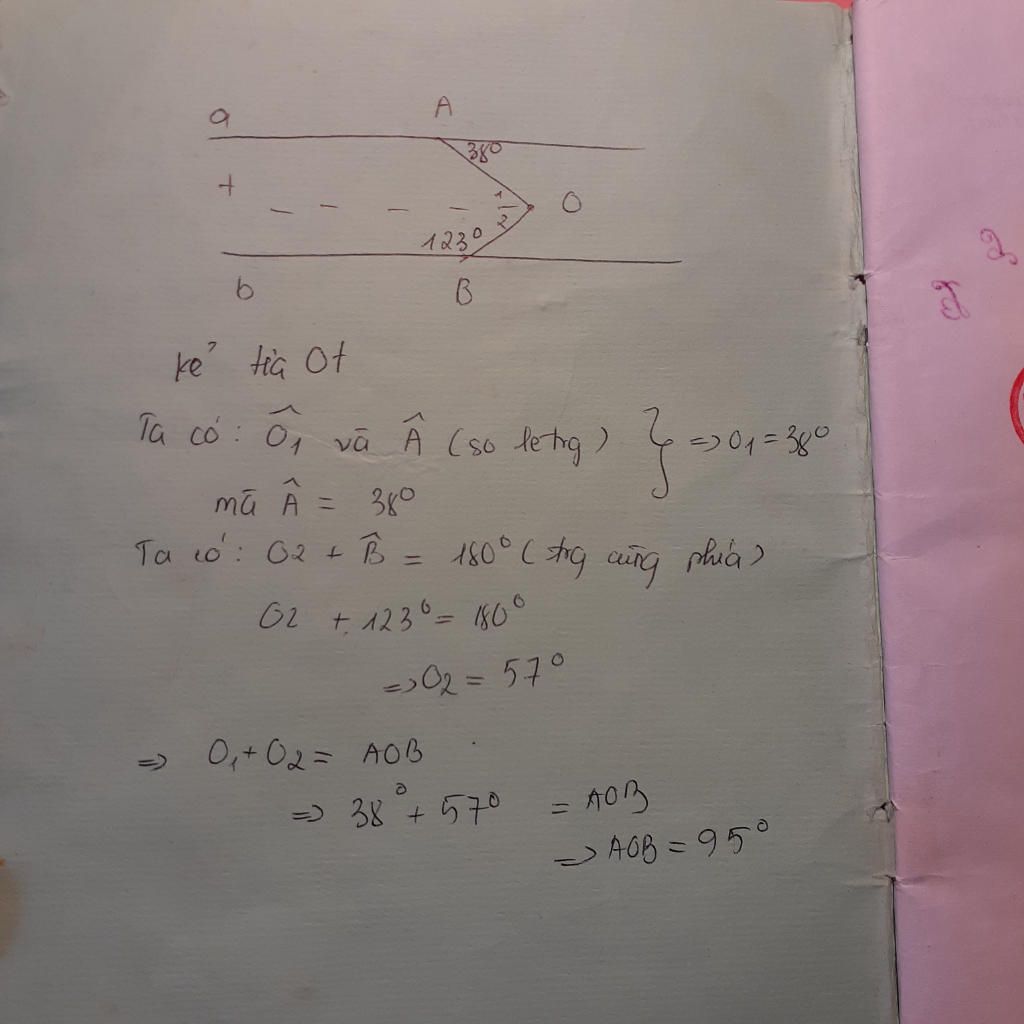 a A
38°
t 1 O
2
123°
b B
kẻ tia Ot
Ta có: Ô1 và Â (so le trg) } => O1 = 38°
mà Â = 38°
Ta có: O2 + B̂ = 180° (trg cùng phía)
O2 + 123° = 180°
=> O2 = 57°
=> O1 + O2 = AOB
=> 38° + 57° = AOB
=> AOB = 95°